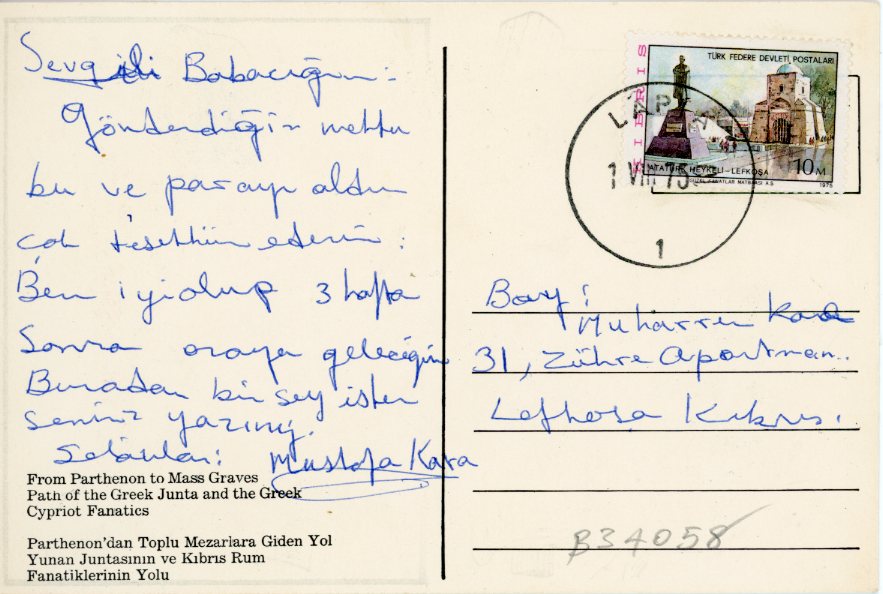 Sevgili Babacığım:
Gönderdiğin mektu
bu ve parayı aldım
çok teşekkür ederim:
Ben iyi olup 3 hafta
Sonra oraya geleceğim
Buradan bir şey ister
seniz yazınız.
Selamlar: Mustafa Kara
From Parthenon to Mass Graves
Path of the Greek Junta and the Greek
Cypriot Fanatics
Parthenon'dan Toplu Mezarlara Giden Yol
Yunan Juntasının ve Kıbrıs Rum
Fanatiklerinin Yolu
KIBRIS
TÜRK FEDERE DEVLETİ POSTALARI
ATATÜRK HEYKELİ - LEFKOŞA
10 M
1975
LAPTA
1 VIII 75
1
Bay:
Muharrem Kara
31, Zühre Apartman..
Lefkoşa Kıbrıs.
B34058